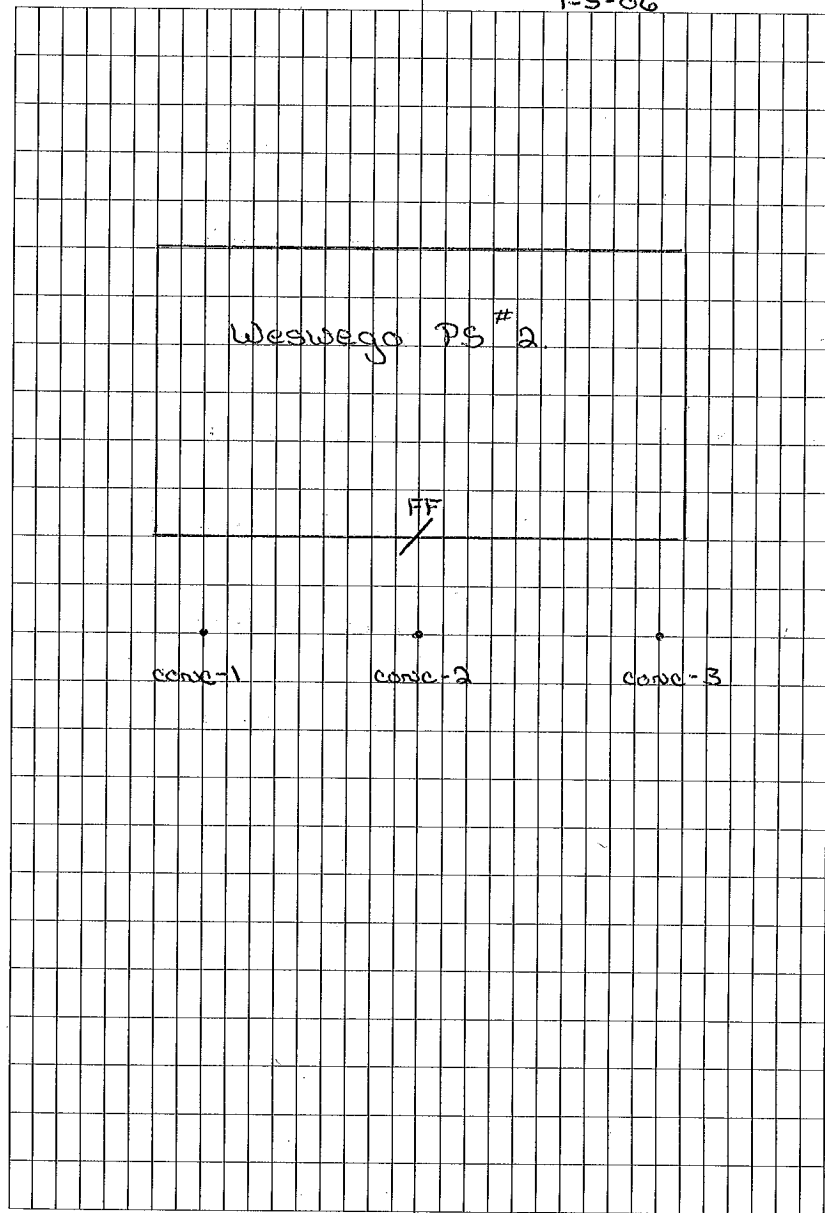 1-3-06
Weswego PS #2.
FF
conc-1
conc-2
conc-3